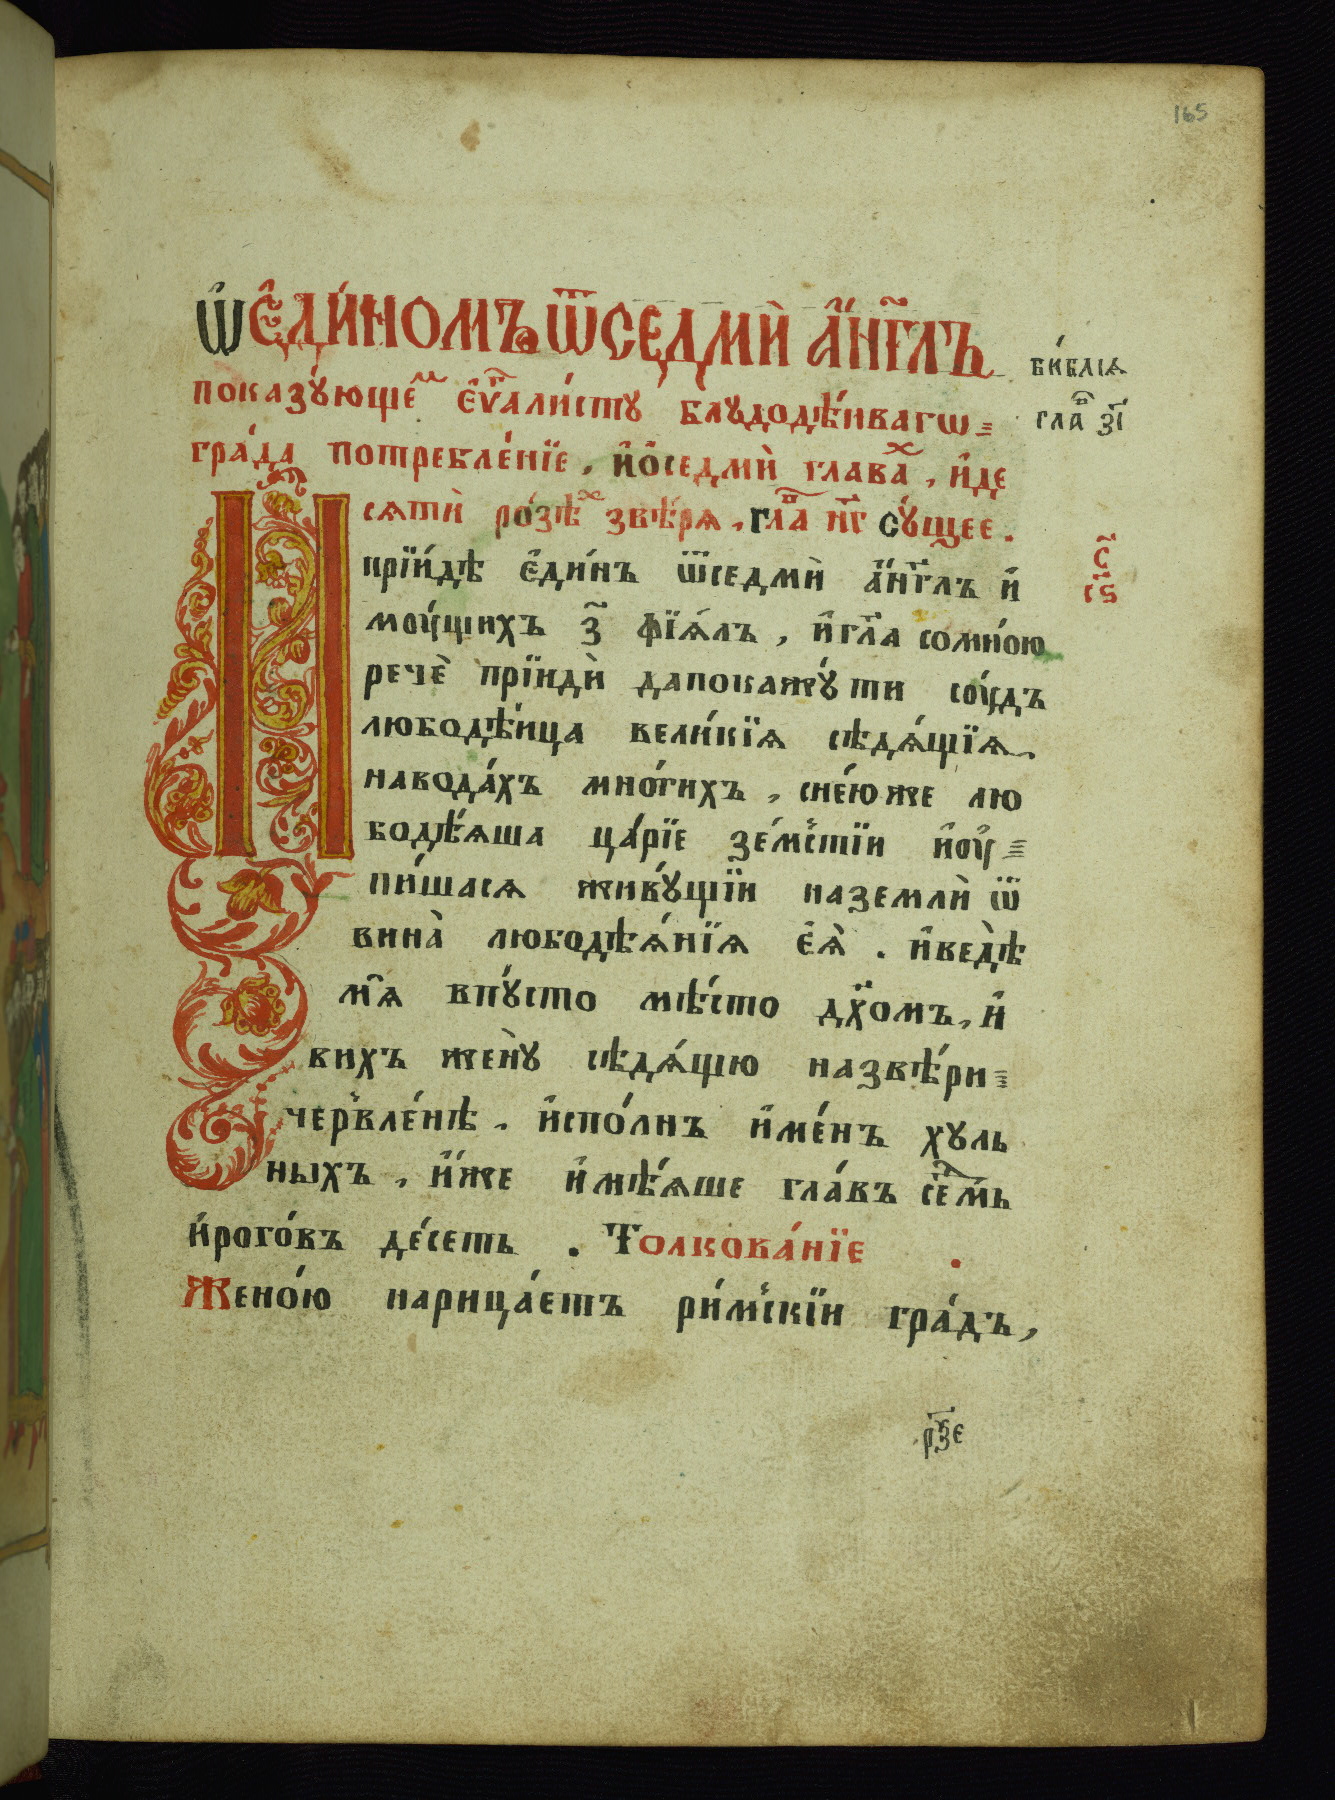 165
Ѡ҆Є҆ДИ́НОМЪ Ѿ СЕДМЍ А҆́НГ҃ЛЪ
показꙋ́юще м є҆ѵⷢ҇али́стꙋ блудодѣ́иваго ꙍ=
библїѧ
гла в з҃і
гра́да потребле́нїе . и҆ о҆седмѝ глава х , и҆де
сѧтѝ ро́зѣх звѣ́рѧ , гла в н҃г сꙋ́щее .
с҃
с҃ѕ
И прїи́дѣ є҆ди́нъ ѿседмѝ а҆́нг҃лъ и҆
моу́щихъ з҃ фїѧ́лъ , и҆ гл҃а сомно́ю
речѐ прїидѝ дапокажꙋ́ ти соу́дъ
любодѣ́ица вели́кїѧ сѣдѧ́щїѧ .
навода́хъ мно́гихъ , сне́юже лю
бодѣ́ѧша ца́рїе зе́мстїи и҆оу҆=
пи́шасѧ живꙋ́щїи наземлѝ ѿ
вина̀ любодѣѧ́нїѧ є҆ѧ̀ . и҆ведѐ
мѧ впꙋ́сто мѣ́сто дх҃омъ , и҆
вихъ жену̀ сѣдѧ́щю назвѣ́ри=
червле́нѣ . и҆спо́лнъ и҆ме́нъ хуль
ныхъ , и҆́же и҆мѣ́ѧше гла́въ се́дмь
и҆рого́въ де́сеть . Толкова́нїе .
Жено́ю нарица́етъ ри́мскїи гра́дъ ,
рѯ҃е